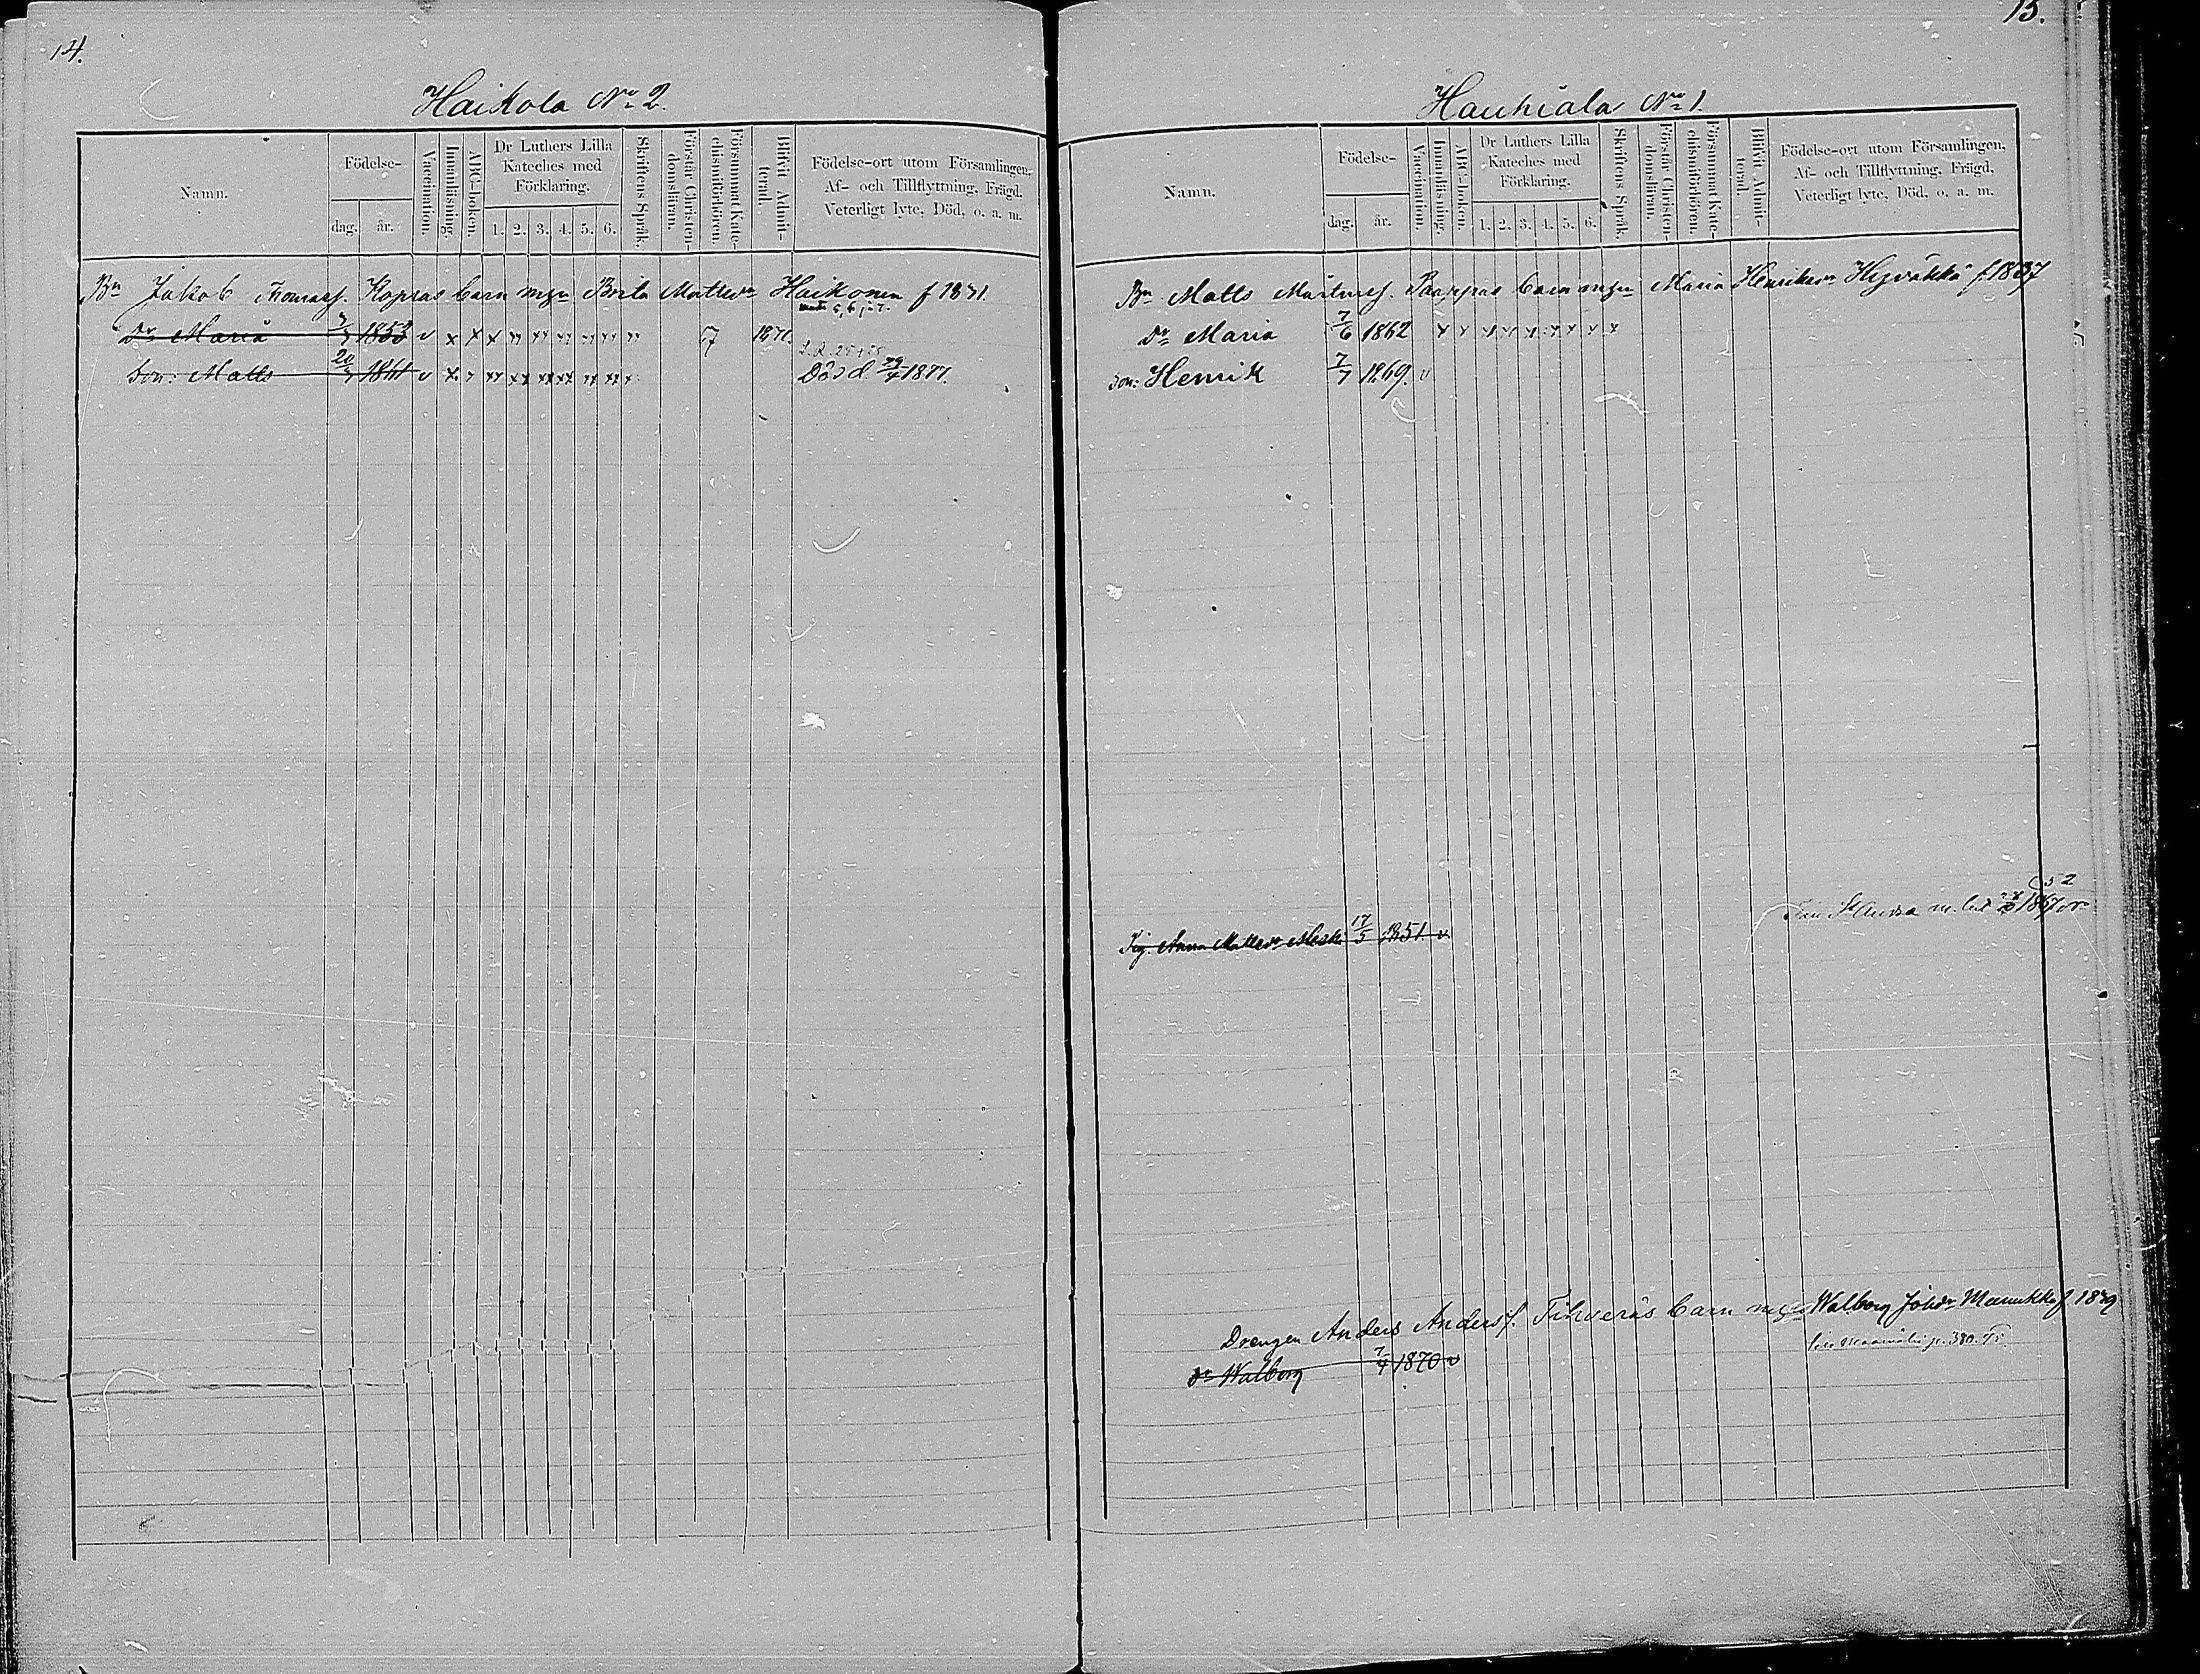 14.
Haikola No 2.
Namn.
Födelse-
dag.
år.
Vaccination.
Innanläsning.
ABC-boken.
Dr Luthers Lilla
Kateches med
Förklaring.
1. 2. 3. 4. 5. 6.
Skriftens Språk.
Förstår Christen-
domsläran.
Försummat Kate-
chismiförhören.
Blifvit Admit-
terad.
Födelse-ort utom Församlingen,
Af- och Tillflyttning, Frägd,
Veterligt lyte, Död, o. a. m.
Bn Jakob Thomass. Kopras barn m Brita Mattsdr Haikonen f 1831.
dr Maria 1853 v x x x 7 1871.
Son: Matts 20/7 1861 v x Död 1877.
15.
Hauhiala No 1.
Namn.
Födelse-
dag.
år.
Vaccination.
Innanläsning.
ABC-boken.
Dr Luthers Lilla
Kateches med
Förklaring.
1. 2. 3. 4. 5. 6.
Skriftens Språk.
Förstår Christen-
domsläran.
Försummat Kate-
chismiförhören.
Blifvit Admit-
terad.
Födelse-ort utom Församlingen,
Af- och Tillflyttning, Frägd,
Veterligt lyte, Död, o. a. m.
Bn Matts Mårtenss. Paappas barn m Maria Henriksdr f. 1837
dr Maria 7/6 1862 x x x x x x x x x
son: Henrik 7/7 1869. v
52
St Andrea m. bet 1867
Pig. Anna Mattsdr 17/5 1851. v
Drengen Anders Anderss. Tihveräs barn m Walborg Johdr f 1839
p. 380.
dr Walborg 7/4 1870 v